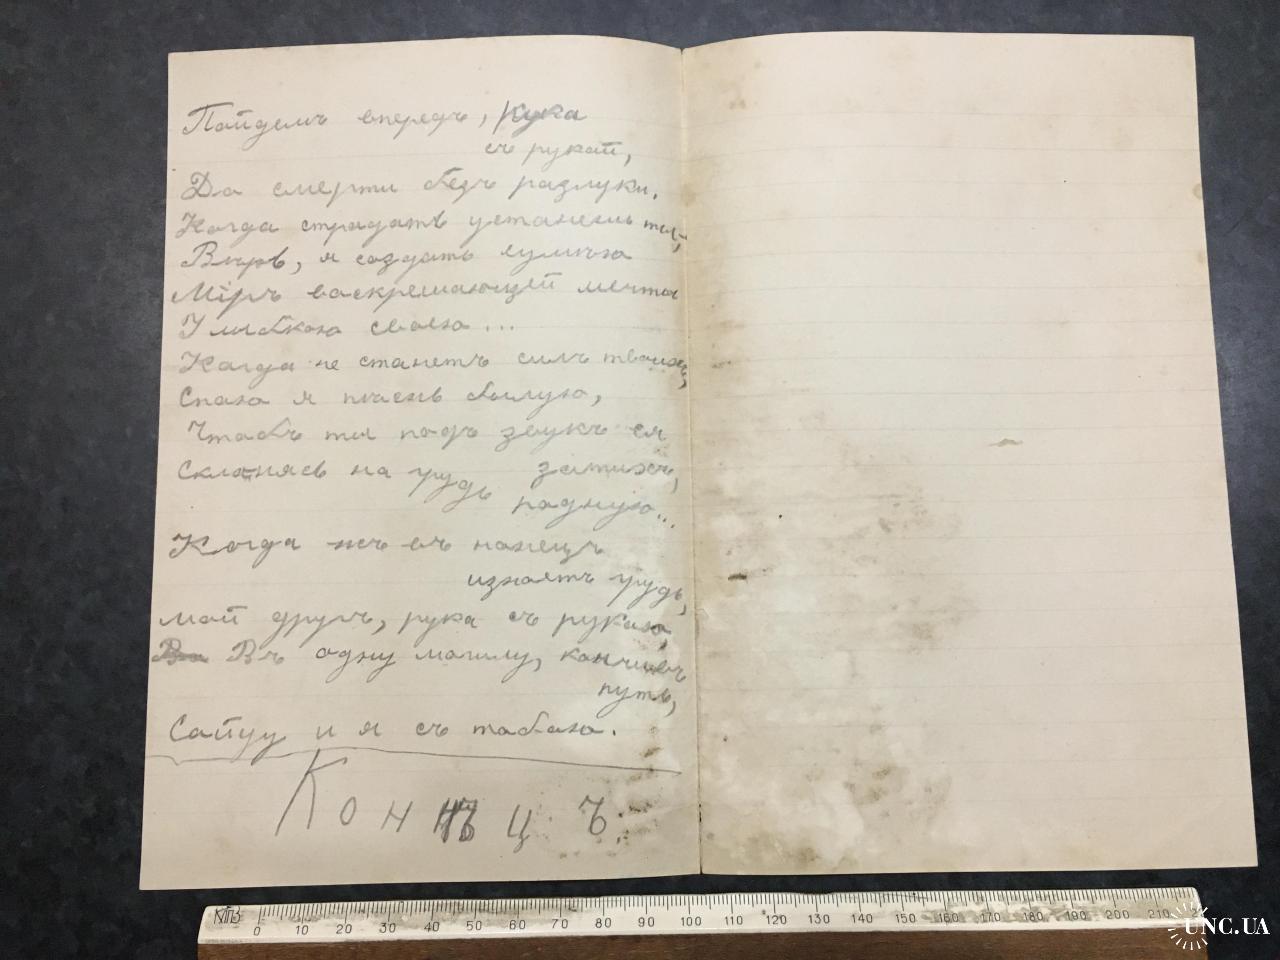 Пойдемъ впередъ, рука
съ рукой,
До смерти безъ разлуки.
Когда страдать устанешь ты,
Вѣрь, я создать сумѣю
Міръ воскрешающей мечты
Улыбкою своею...
Когда не станетъ силъ твоихъ,
Спою я пѣснь былую,
Чтобъ ты подъ звукъ ея
затихъ,
Склонясь на грудь
родную...
Когда жъ въ конецъ
изноетъ грудь,
мой другъ, рука съ рукою,
Въ одну могилу, кончивъ
путь,
Сойду и я съ тобою.
Конѣцъ.
КТПЗ 0 10 20 30 40 50 60 70 80 90 100 110 120 130 140 150 160 170 180 190 200 210
UNC.UA